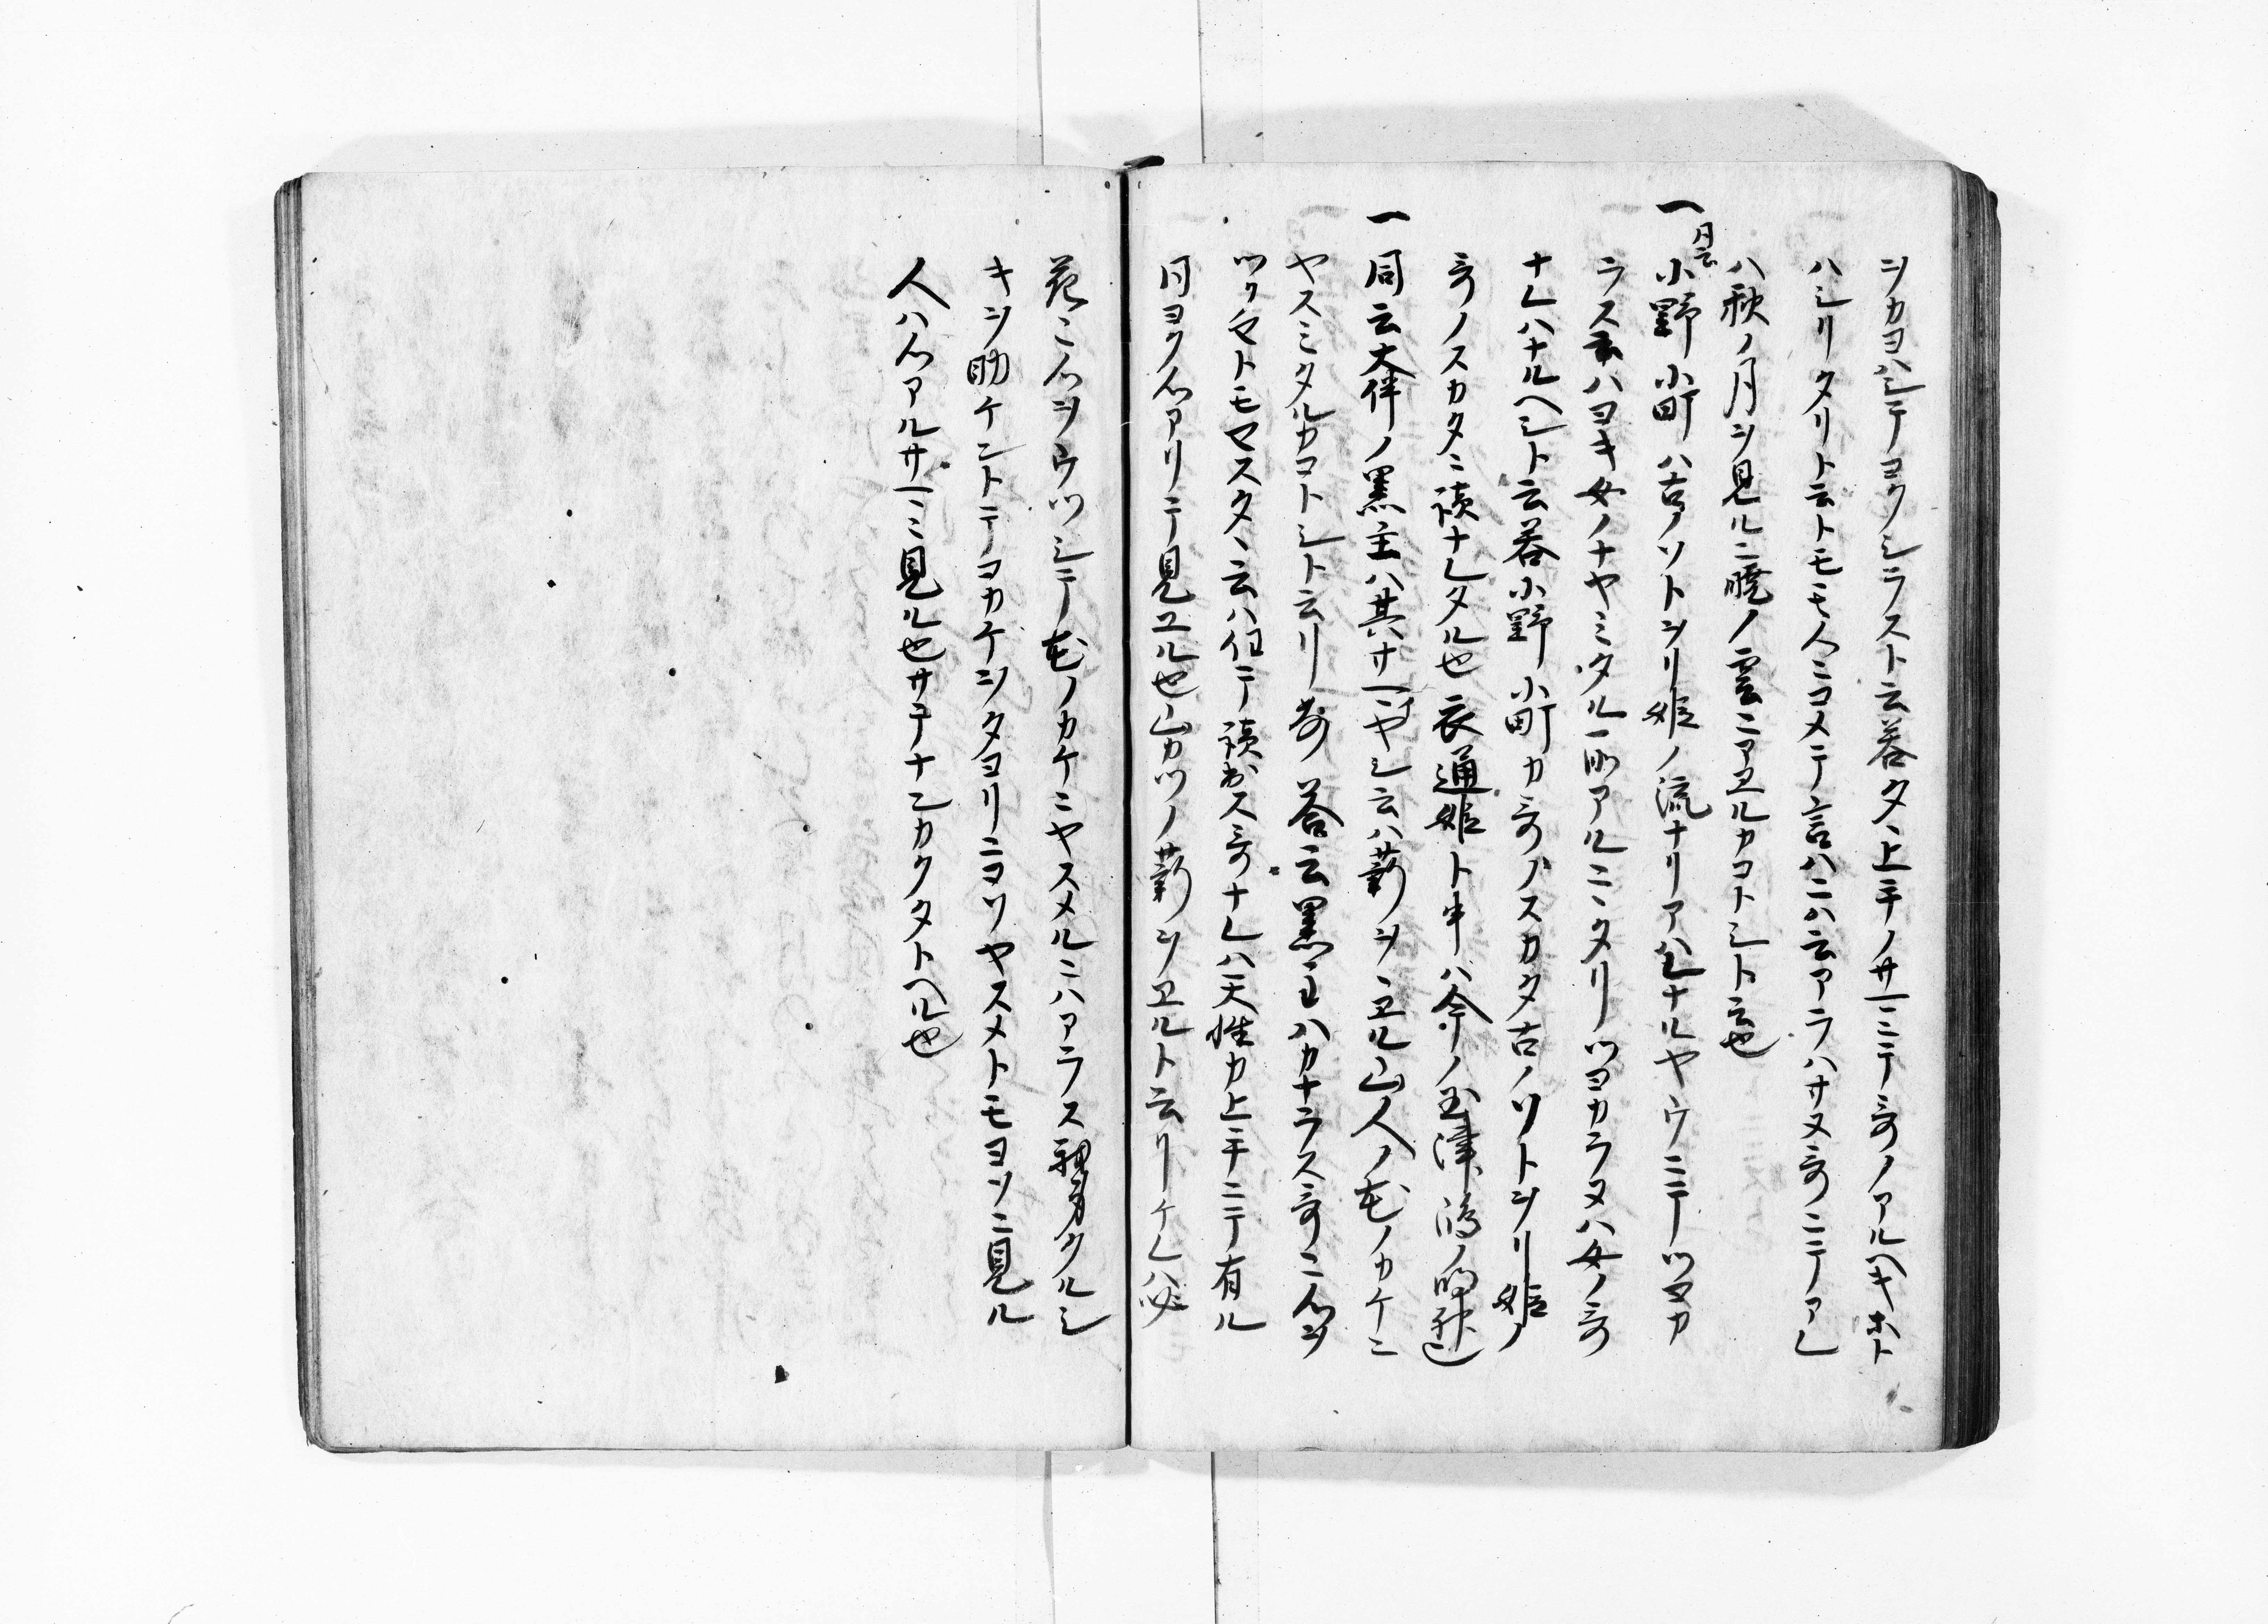 シカヨハシテヨクシラスト云答タヽ上手ノサマニテ哥ノアルヘキホト
ハシリタリト云トモモ人ニコメテ言ハニハ云アラハサヌ哥ニテアレ
ハ秋ノ月ヲ見ルニ暁ノ雲ニアヱルカコトシト云也
一 同云小野小町ハ古ノソトヲリ姫ノ流ナリアハレナルヤウニテツヨカ
ラス云ハヨキ女ノナヤミタル所アルニヽタリツヨカラヌハ女ノ哥
ナレハナルヘシト云答小野小町カ哥ノスカタ古ノソトヲリ姫ノ
哥ノスカタニ読ナレタル也衣通姫ト申ハ今ノ玉津嶋ノ明神也
一 同云大伴ノ黒主ハ其サマイヤシ云ハ薪ヲヽヱル山人ノ花ノカケニ
ヤスミタルカコトシト云リ答云黒主ハカナラス哥ニ心ヲ
ツクマトモマスタヽ云ハ但テ読出ス哥ナレハ天性カ上手ニテ有ル
同ヨク心アリテ見ヱル也山カツノ薪ヲヱルト云リケレハ必
花ニ心ヲウツシテ花ノカケニヤスメルニハアラス羽身クルシ
キヲ助ケントテコカケヲタヨリニヨリヤスメトモヨソニ見ル
人ハ心アルサマニ見ル也サテナンカクタトヘル也